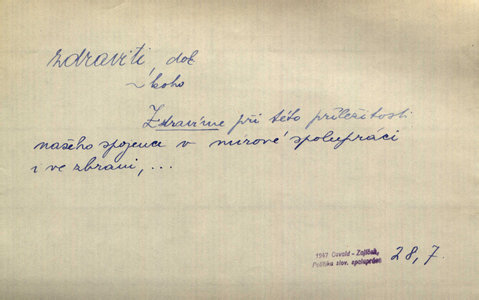 zdraviti, dok
koho
Zdravíme při této příležitosti
našeho spojence v mírové spolupráci
i ve zbrani, ...
1947 Osvald - Zajíček,
Politika slov. spolupráce
28,7.